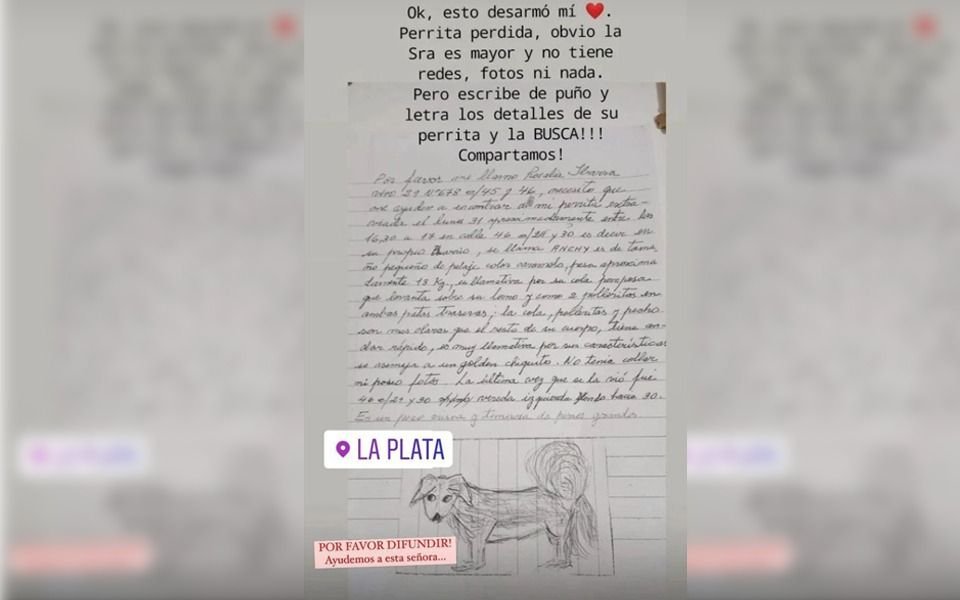 Ok, esto desarmó mí ❤️.
Perrita perdida, obvio la
Sra es mayor y no tiene
redes, fotos ni nada.
Pero escribe de puño y
letra los detalles de su
perrita y la BUSCA!!!
Compartamos!
Por favor me llamo Rosalia Ibarra
vivo 29 Nº678 e/45 y 46, necesito que
me ayuden a encontrar a mi perrita extra-
viada el lunes 31 aproximadamente entre las
16,30 a 17 en calle 46 e/29 y 30 es decir en
su propio Barrio, se llama ANCHY es de tama
ño pequeño de pelaje color caramelo, pesa aproxima
damente 13 Kg, es llamativa por su cola pomposa
que levanta sobre su lomo y como 2 polleritas en
ambas patas traseras; la cola, polleritas y pecho
son mas claras que el resto de su cuerpo, tiene an-
dar rápido, es muy llamativa por sus características
se asemeja a un golden chiquito. No tenía collar
ni poseo fotos. La última vez que se la vió fue
46 e/29 y 30 vereda izquierda yendo hacia 30.
Es un poco y temerosa de perros grandes.
LA PLATA
POR FAVOR DIFUNDIR!
Ayudemos a esta señora...